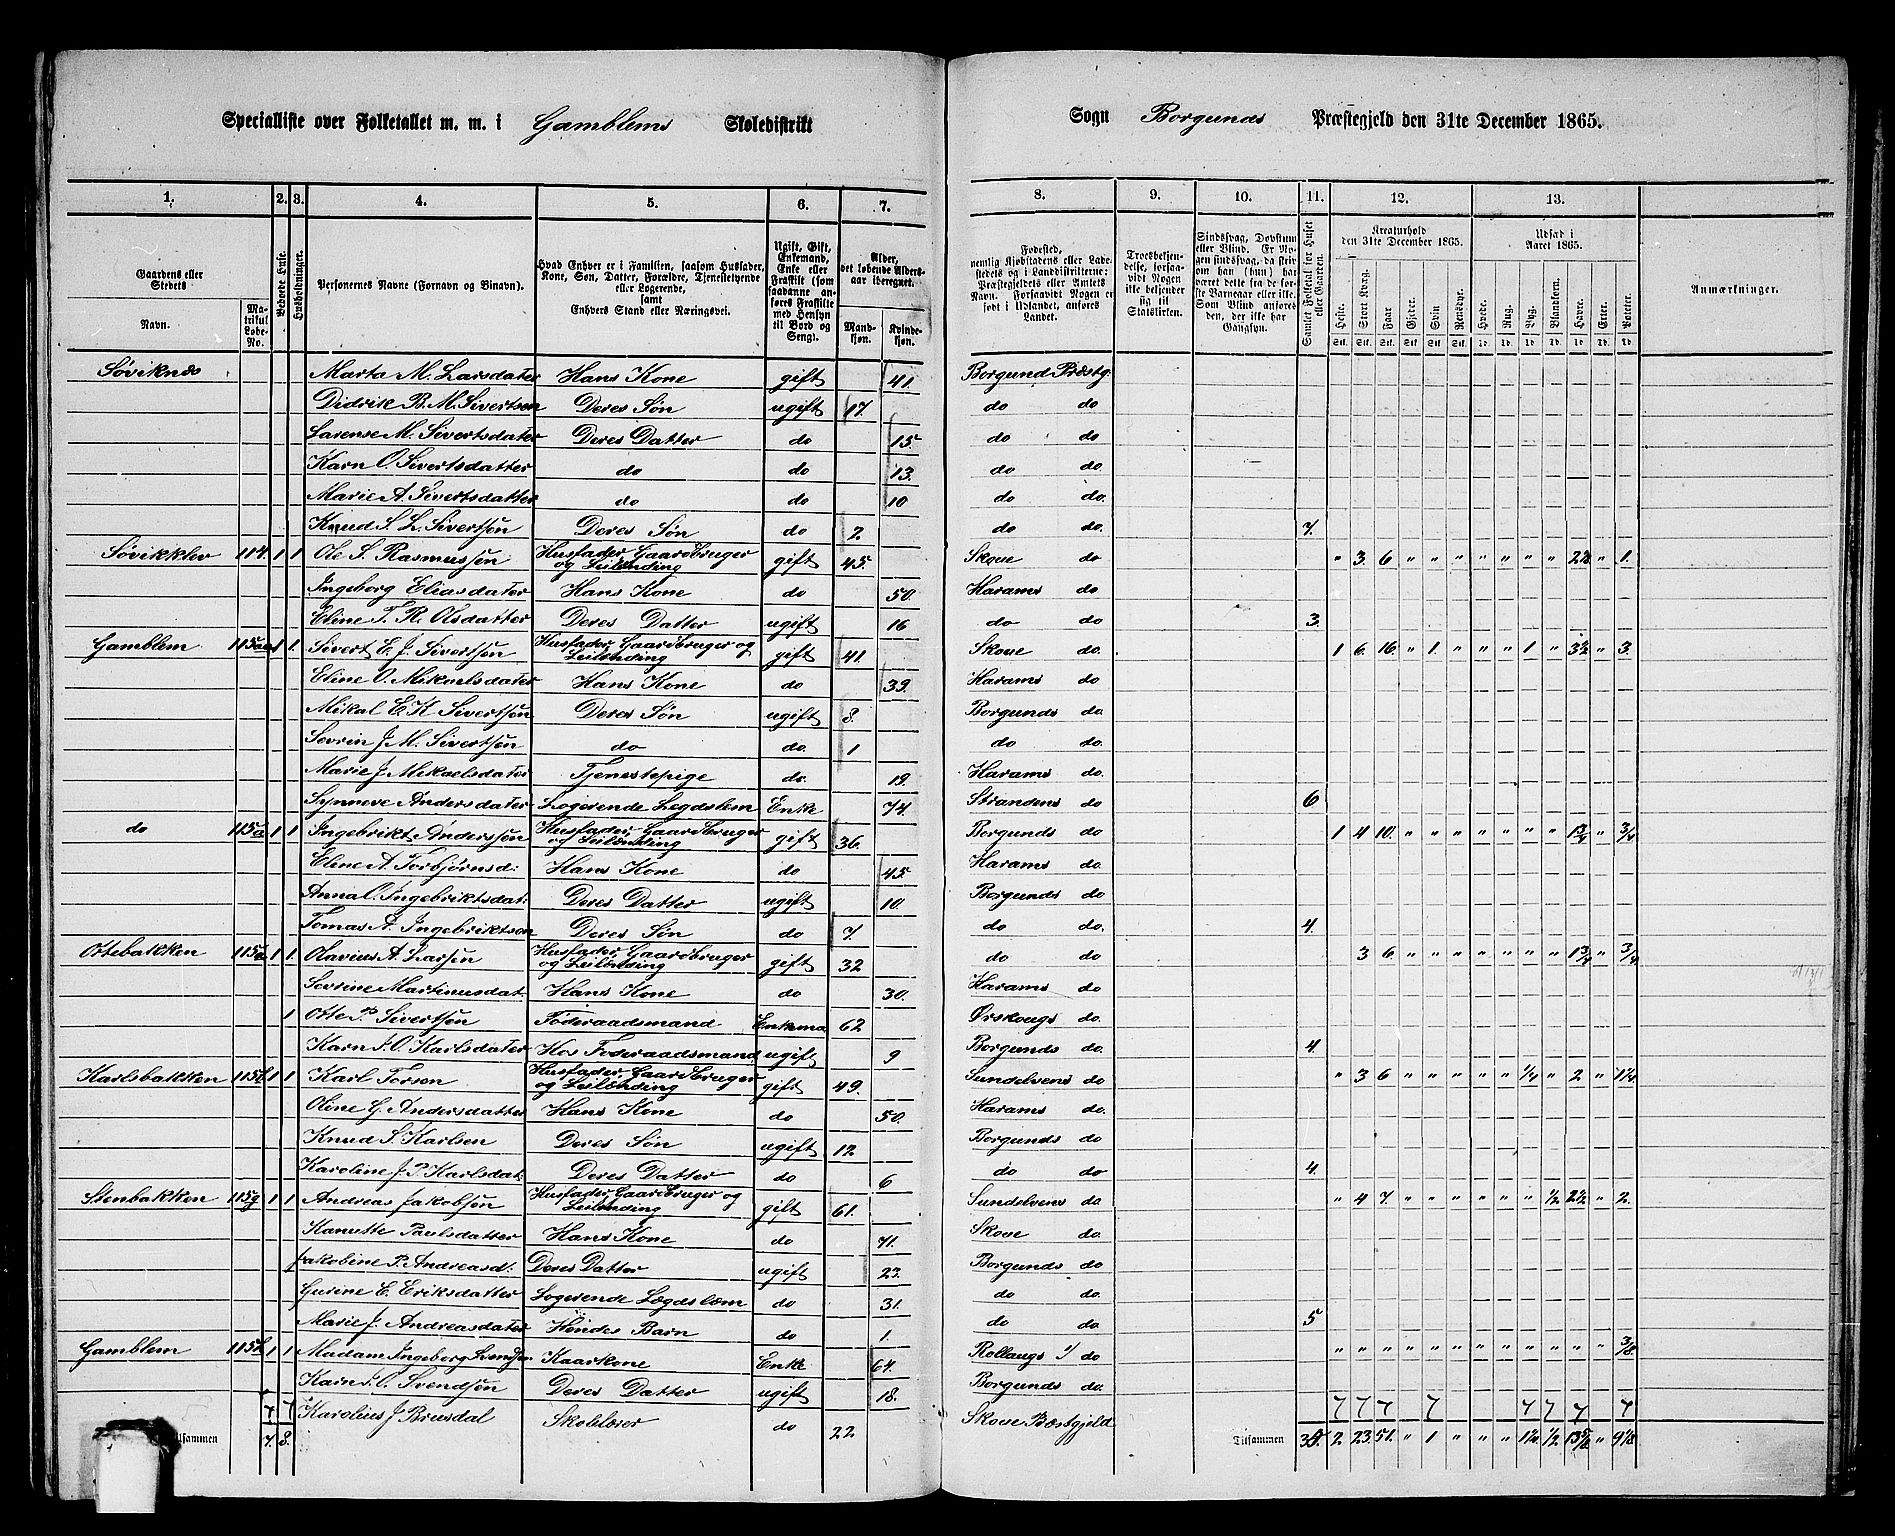 Specialliste over Folketallet m. m. i Gamblems Skoledistrikt
Sogn Borgunds Præstegjeld den 31te December 1865.
1. 2. 3. 4. 5. 6. 7. 8. 9. 10. 11. 12. 13.
Gaardens eller Stedets
Navn.
Matrikul Løbe-No.
Beboede Huse.
Husholdninger.
Personernes Navne (Fornavn og Binavn).
Hvad Enhver er i Familien, saasom Husfader, Kone, Søn, Datter, Forældre, Tjenestetyende eller Logerende, samt Enhvers Stand eller Næringsvei.
Ugift, Gift, Enkemand, Enke eller Fraskilt (som saadanne anføres Fraskilte med Hensyn til Bord og Seng).
Alder, det løbende Alders-aar iberegnet.
Mandkjøn. Kvindekjøn.
Fødested, nemlig Kjøbstadens eller Ladestedets og i Landdistrikterne: Præstegjeldets eller Amtets Navn. Forsaavidt Nogen er født i Udlandet, anføres Landet.
Troesbekjendelse, forsaavidt Nogen ikke bekjender sig til Statskirken.
Sindssvag, Døvstum eller Blind. Er Nogen sindssvag, da skriv om han (hun) har været dette fra de første Barneaar eller ikke. Som Blind anføres den, der ikke har Gangsyn.
Samlet Folketal for Huset eller Gaarden.
Kreaturhold den 31te December 1865.
Heste. Stort Kvæg. Faar Gjeder. Svin Rensdyr.
Udsæd i Aaret 1865.
Hvede. Rug. Byg. Blandkorn. Havre. Erter. Poteter.
Anmærkninger.
Søviknes Marta M. Larsdater Hans Kone gift 41. Borgund Præstg:
Didrik B. M. Sivertsen Deres Søn ugift 17 do do
Larense M. Sivertsdater Deres Datter do 15. do do
Karn O. Sivertsdatter do do 13. do do.
Marie A. Sivertsdatter do do 10 do do.
Knud S. L. Sivertsøn Deres Søn do 2 do do. 7.
Søvikklev 114. 1 1 Ole S. Rasmussøn Husfader, Gaardbruger og Leilænding gift 45. Skoue do " 3. 6 " " " " " " " 2½ " 1.
Ingeborg Eliasdater Hans Kone do 50. Harams do
Eline T. R. Olsdatter Deres Datter ugift 16 do do 3.
Gamblem 115aa 1 1. Sivert E. J. Sivertsøn Husfader, Gaardbruger og Leilænding gift 41. Skoue do. 1 6. 16. " 1. " " " 1 " 3½ " 3.
Eline O. Mikaelsdater Hans Kone do 39. Harams do
Mikal E. K Sivertsøn Deres Søn ugift 8. Borgunds do.
Sevrin J. M. Sivertsøn do do. 1 do do.
Marie J. Mikaelsdater Tjenestepige do. 19. Harams do.
Synneve Andersdater Logerende Legdslem Enke 74. Strandens do 6
do 115a 1 1 Ingebrikt Anderssøn Husfader, Gaardbruger og Leilænding gift 36. Borgunds do 1 4 10. " " " " " " " 1¾ " ¾
Eline A. Torbjørnsd: Hans Kone do 45. Harams do.
Anna O. Ingebriktsdat: Deres Datter ugift 10. Borgunds do
Tomas A. Ingebriktson Deres Søn do 7. do do. 4.
Ottebakken 115a 1 1. Olavius A. Larsøn Husfader, Gaardbruger og Leilænding gift 32 do do 3 6 " " " " " " " 1¾ " ¾
Sevrine Martinusdat: Hans Kone do 30. Harams do
1 Otte P. Sivertsøn Føderaadsmand Enkema 62 Ørskougs do.
Karn S. O. Karlsdater Hos Føderaadsmand ugift 9 Borgunds do. 4.
Karlsbakken 115b 1 1 Karl Torsøn Husfader, Gaardbruger og Leilænding gift 49. Sundelvens do " 3 6 " " " " " ¼ " 2 " 1¼.
Oline G. Andersdatter Hans Kone do 50. Harams do.
Knud S. Karlsen Deres Søn ugift 12 Borgunds do
Karoline J. P. Karlsdat: Deres Datter do 6 do do 4.
Stenbakken 115g 1 1 Andreas Jakobsøn Husfader, Gaardbruger og Leilænding gift 61. Sundelvens do " 4 7. " " " " " " ½ 2½ " 2.
Kanutte Paulsdatter Hans Kone do 71. Skoue do.
Jakobine P. Andreasd: Deres Datter ugift 23. Borgunds do
Gurine E. Eriksdatter Logerende Lægdslem do 31. do do.
Marie J. Andreasdater Hendes Barn do 1. do do. 5
Gamblem 115b 1 1 Madam Ingeborg Svendsen Kaarkone Enke 64. Rollaugs do " " " " " " " " " " " " 3/8
Karn S. O. Svendsøn Deres Datter ugift 18. Borgunds do.
7 7 Karolius J. Brusdal Skolelærer do 22 Skoue Præstgjeld 7 7 7 7 7 7 7 7
Tilsammen 7. 8. Tilsammen 35. 2 23. 51. " 1 " " " 1¼ ½ 13⅝ " 9⅛